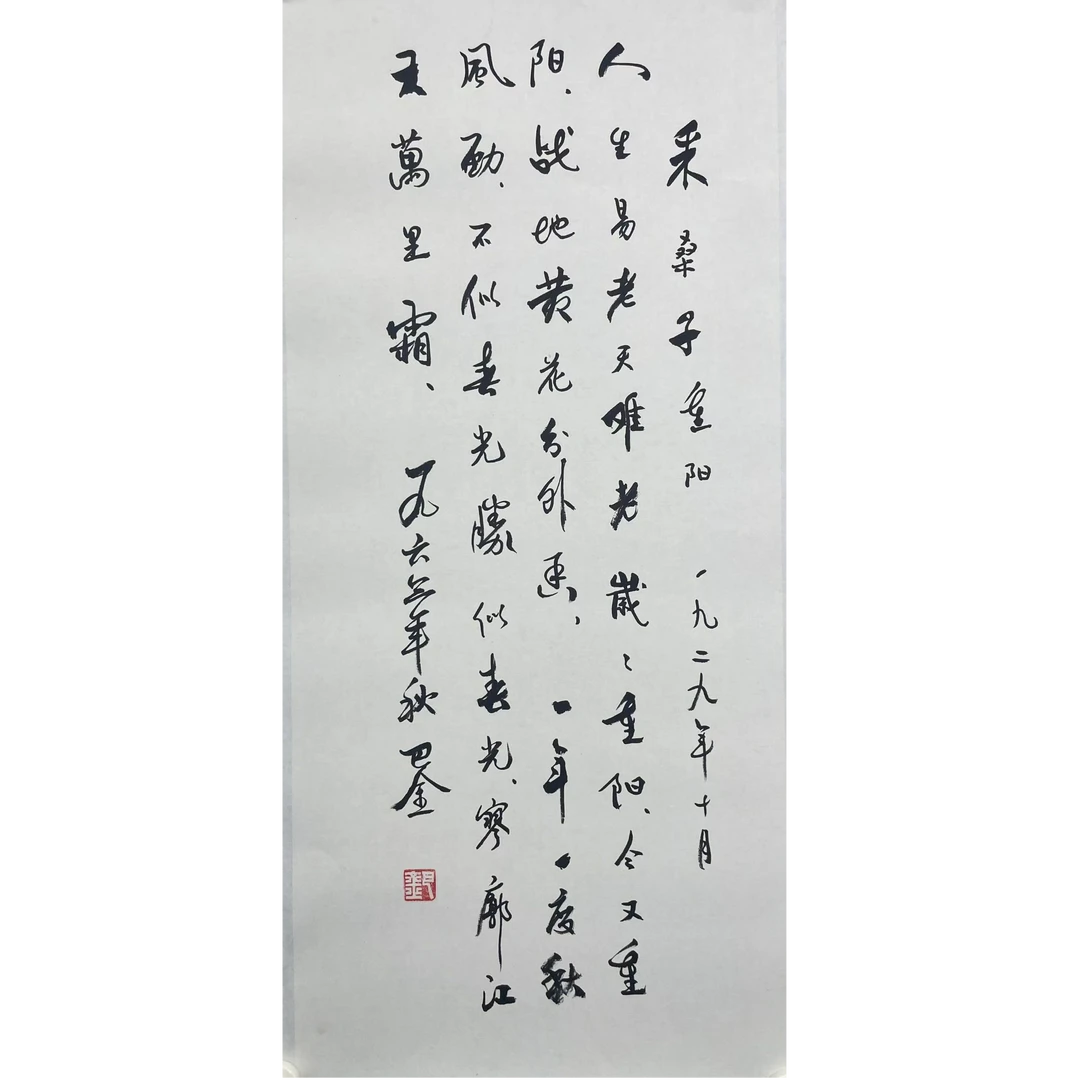 采桑子重阳 一九二九年十月
人生易老天难老歲々重阳、今又重
阳、战地黄花分外香、一年一度秋
風劲、不似春光勝似春光、寥廓江
天萬里霜、一九六三年秋 巴金